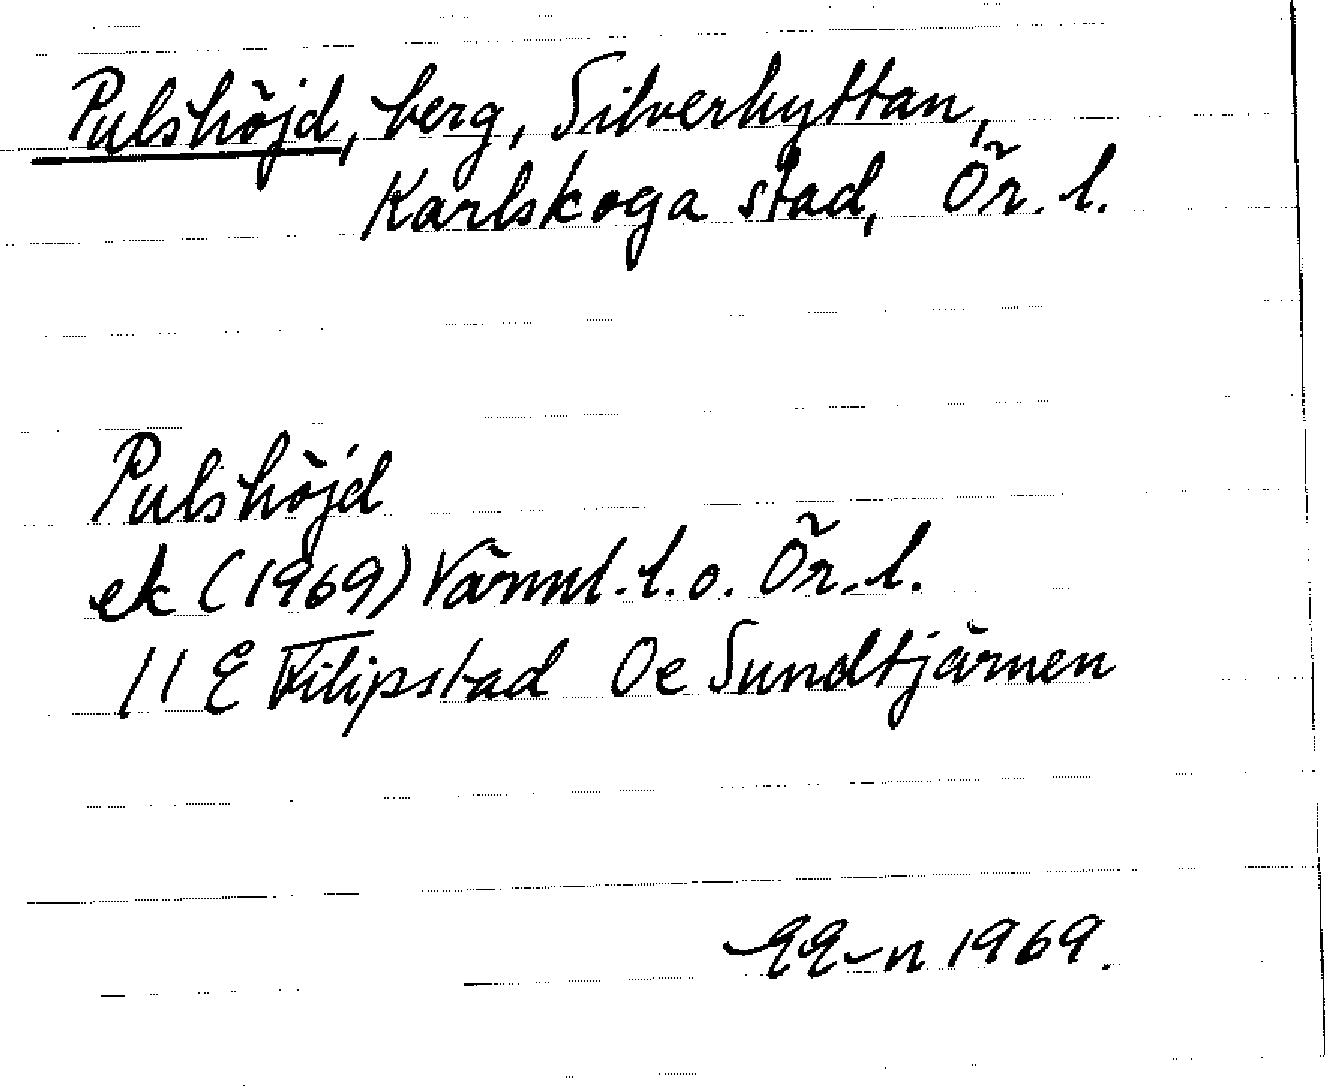 Pulshöjd, berg, Silverhyttan,
Karlskoga stad, Ör. l.
Pulshöjd
ek (1969) Värml. l. o. Ör. l.
11 E Filipstad Oe Sundtjärnen
EE-n 1969.